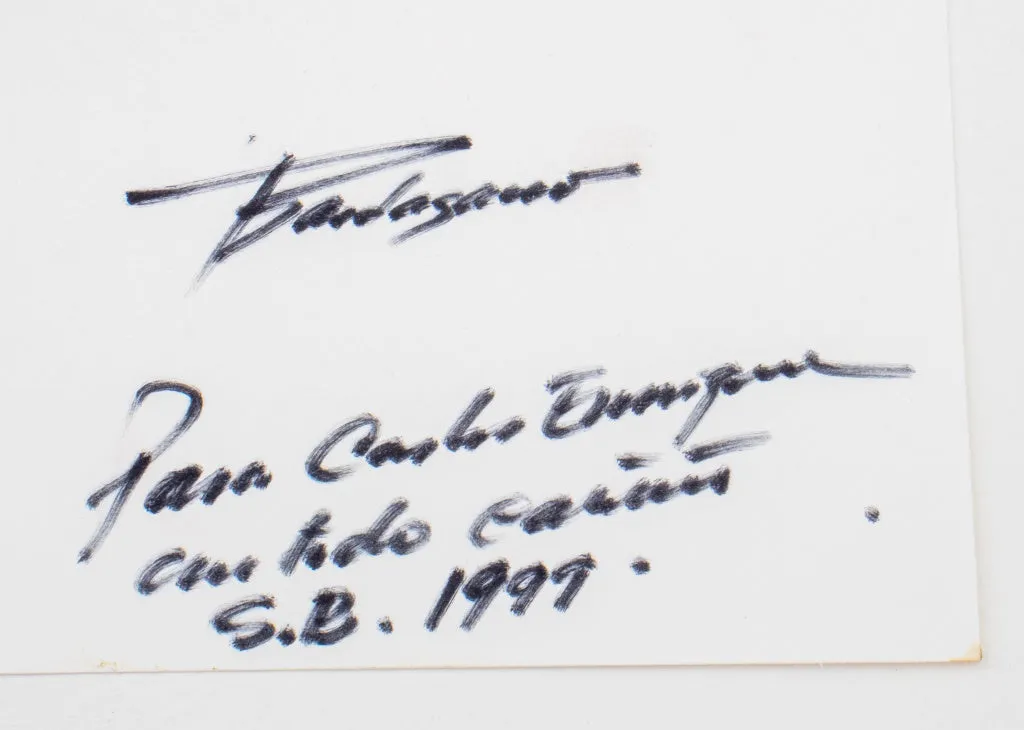 Bardasano
Para Carlos Enrique
con todo cariño
S.B. 1999.